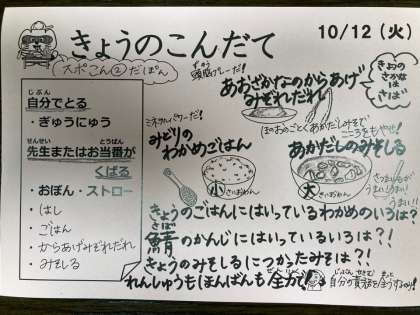 きょうのこんだて
10/12（火）
スポこん②だぽん
頭脳プレーだ!
ずのう
きょうの
さかな
は
さば
あおざかなのからあげ
みぞれだれ
じぶん
自分でとる
・ぎゅうにゅう
せんせい
とうばん
先生またはお当番が
くばる
・おぼん・ストロー
・はし
・ごはん
・からあげみぞれだれ
・みそしる
ミネラルパワーだ!
みどりの
わかめごはん
小
さいおわん
ほのおのごとくあかだしみそで
こころをもやせ!
あかだしのみそしる
大
きいおわん
うまい!!
きょうのごはんにはいっているわかめのいろは?
鯖のかんじにはいっているいろは?!
さば
きょうのみそしるにつかったみそは?!
れんしゅうもほんばんも全力で!
自分の責務を全うするのだ!